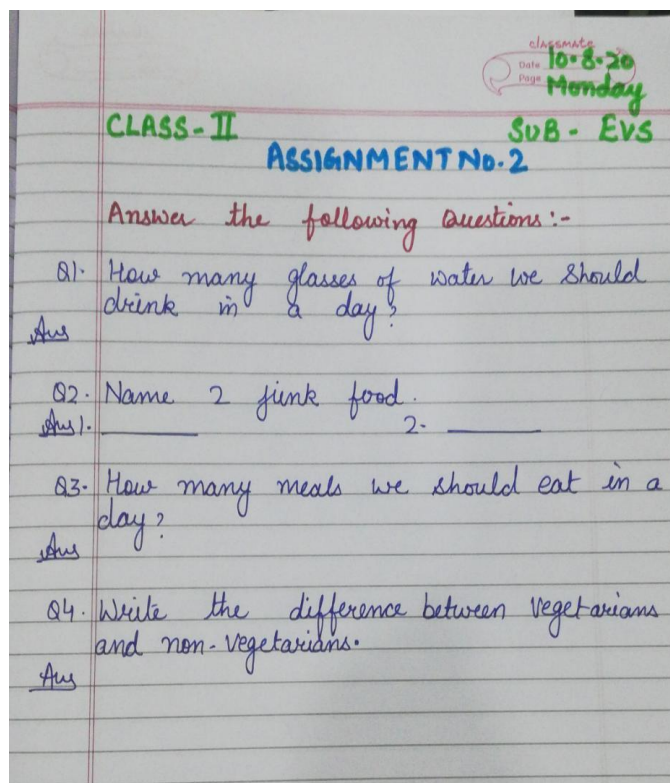 classmate
Date 10.8.20
Page Monday
CLASS-II SUB - EVS
ASSIGNMENT No. 2
Answer the following Questions :-
Q1. How many glasses of water we should
drink in a day?
Ans
Q2. Name 2 junk food.
Ans 1. ________ 2. ________
Q3. How many meals we should eat in a
day?
Ans
Q4. Write the difference between vegetarians
and non-vegetarians.
Ans